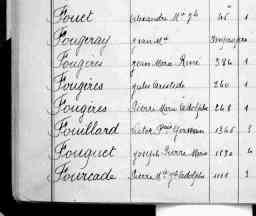 Fouet Alexandre Mie 45 1
Fougeray Jean Mie
Fougères Jean Marie René 384 1
Fougères Jules Aristide 260 1
Fougères Pierre Marie Adolphe 248 1
Fouillard Victor Germain 1345 3
Fouquet Joseph Pierre Marie 4
Fourcade Pierre Adolphe 3